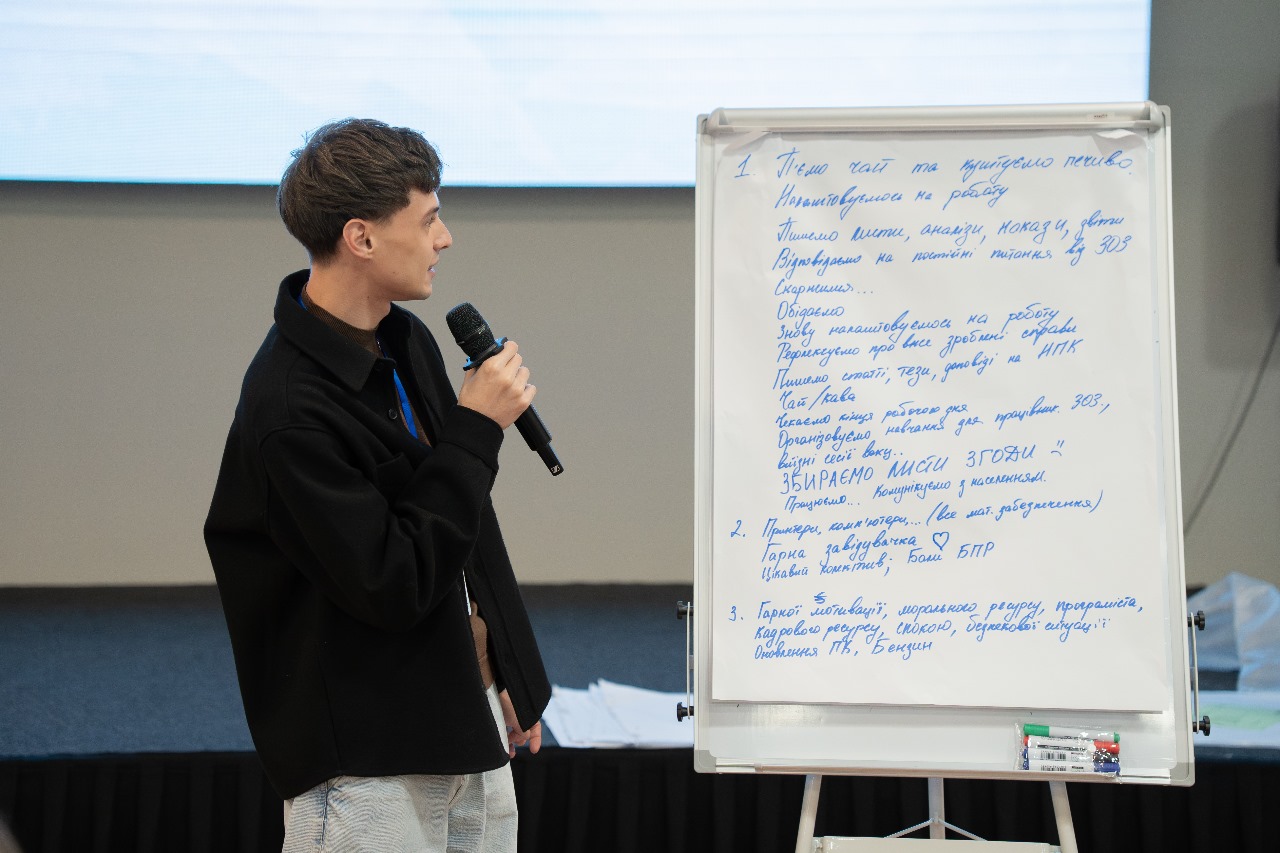 1. П'ємо чай та куштуємо печиво.
Налаштовуємось на роботу
Пишемо листи, аналізи, накази, звіти
Відповідаємо на постійні питання від ЗОЗ
Скаржимся...
Обідаємо
Знову налаштовуємось на роботу
Рефлексуємо про вже зроблені справи
Пишемо статті, тези, доповіді на НПК
Чай/кава
Чекаємо кінця робочого дня
Організовуємо навчання для працівник. ЗОЗ.,
виїзні сесії вакц..
ЗБИРАЄМО ЛИСТИ ЗГОДИ !!
Працюємо... Комунікуємо з населенням.
2. Принтери, комп'ютери,... (все мат. забезпечення)
Гарна завідувачка ♡
Цікавий колектив; Бали БПР
3. Гарної мотивації, морального ресурсу, програміста,
Кадрового ресурсу, спокою, безпекової ситуації
Оновлення ПК, Бензин